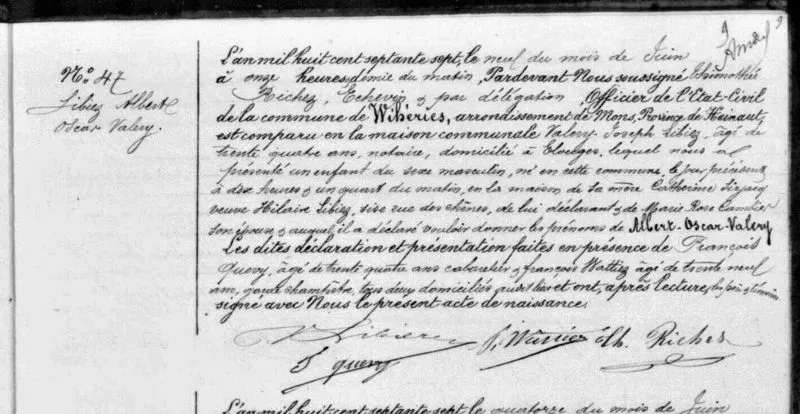 N° 47
Libiez Albert
Oscar Valery.
L'an mil huit cent septante sept, le neuf du mois de Juin
à onze heures & demie du matin, Pardevant Nous soussigné Thimothée
Richez, Echevin & par délégation, Officier de l'Etat-Civil
de la commune de Wihéries, arrondissement de Mons, Province de Hainaut,
est comparu en la maison communale Valery Joseph Libiez, âgé de
trente quatre ans, notaire, domicilié à Elouges, lequel nous a
présenté un enfant du sexe masculin, né en cette commune, le jour précisément
à dix heures & un quart du matin, en la maison de sa mère Catherine
veuve Hilaire Libiez, sise rue des chênes, de lui déclarant & de Marie Rose Cambier
son épouse & auquel il a déclaré vouloir donner les prénoms de Albert-Oscar-Valery
Les dites déclaration et présentation faites en présence de François
Quevy, âgé de trente quatre ans cabaretier & françois Wattiez âgé de trente neuf
ans, garde champêtre, tous deux domiciliés au dit lieu et ont, après lecture, les père & témoins
signé avec Nous le présent acte de naissance.
V Libiez
F quevy
Th. Richez
L'an mil huit cent septante sept, le quatorze du mois de Juin